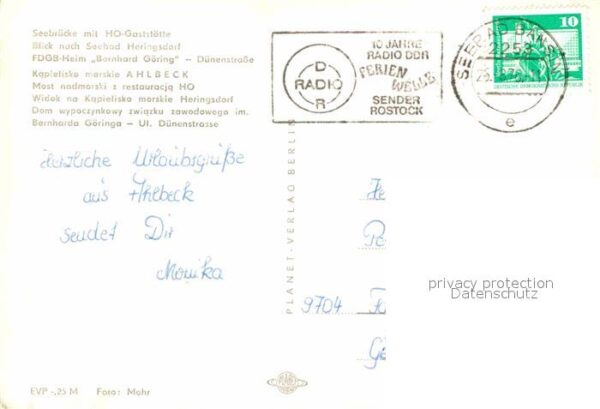 Seebrücke mit HO-Gaststätte
Blick nach Seebad Heringsdorf
FDGB-Heim „Bernhard Göring" – Dünenstraße
Kąpielisko morskie AHLBECK
Most nadmorski z restauracją HO
Widok na Kąpielisko morskie Heringsdorf
Dom wypoczynkowy związku zawodowego im.
Bernharda Göringa – Ul. Dünenstrasse
Herzliche Urlaubsgrüße
aus Ahlbeck
sendet Dir
Monika
EVP -,25 M Foto: Mohr
PLANET-VERLAG BERLIN
D
RADIO
R
10 JAHRE
RADIO DDR
FERIEN
WELLE
SENDER
ROSTOCK
SEEBAD BANSIN
2253
e
10
9704
privacy protection
Datenschutz